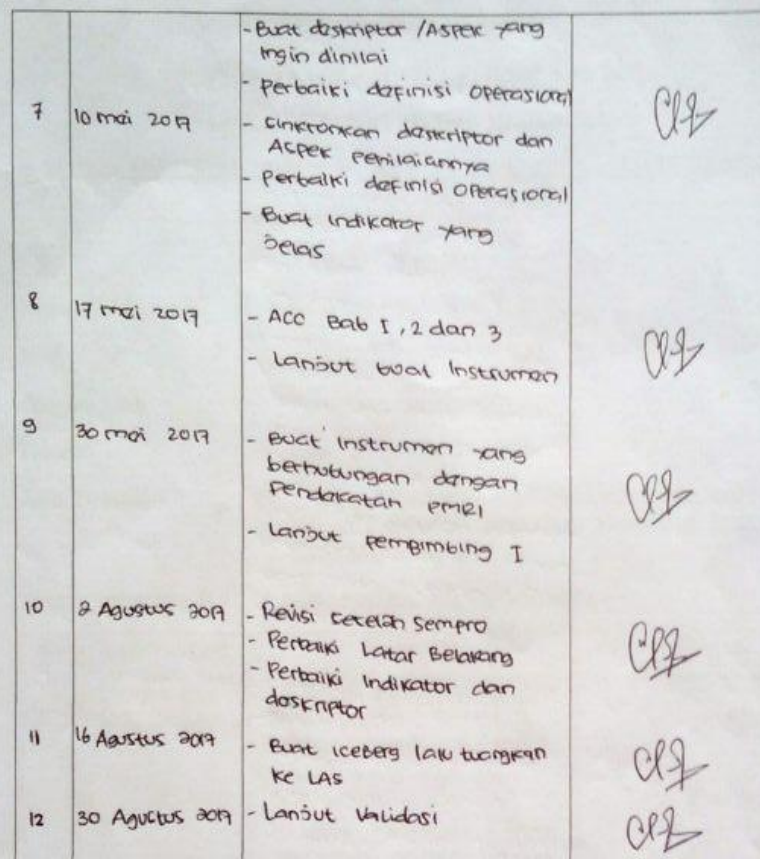 - Buat deskriptor / Aspek yang
ingin dinilai
- Perbaiki definisi operasional
7 10 mei 2017 - Sinkronkan deskriptor dan
Aspek penilaiannya
- Perbaiki definisi operasional
- Buat indikator yang
jelas
8 17 mei 2017 - ACC Bab I, 2 dan 3
- Lanjut buat Instrumen
9 30 mei 2017 - Buat instrumen yang
berhubungan dengan
Pendekatan PMRI
- Lanjut pembimbing I
10 2 Agustus 2017 - Revisi setelah Sempro
- Perbaiki Latar Belakang
- Perbaiki Indikator dan
deskriptor
11 16 Agustus 2017 - Buat iceberg lalu tuangkan
ke LAS
12 30 Agustus 2017 - Lanjut Validasi